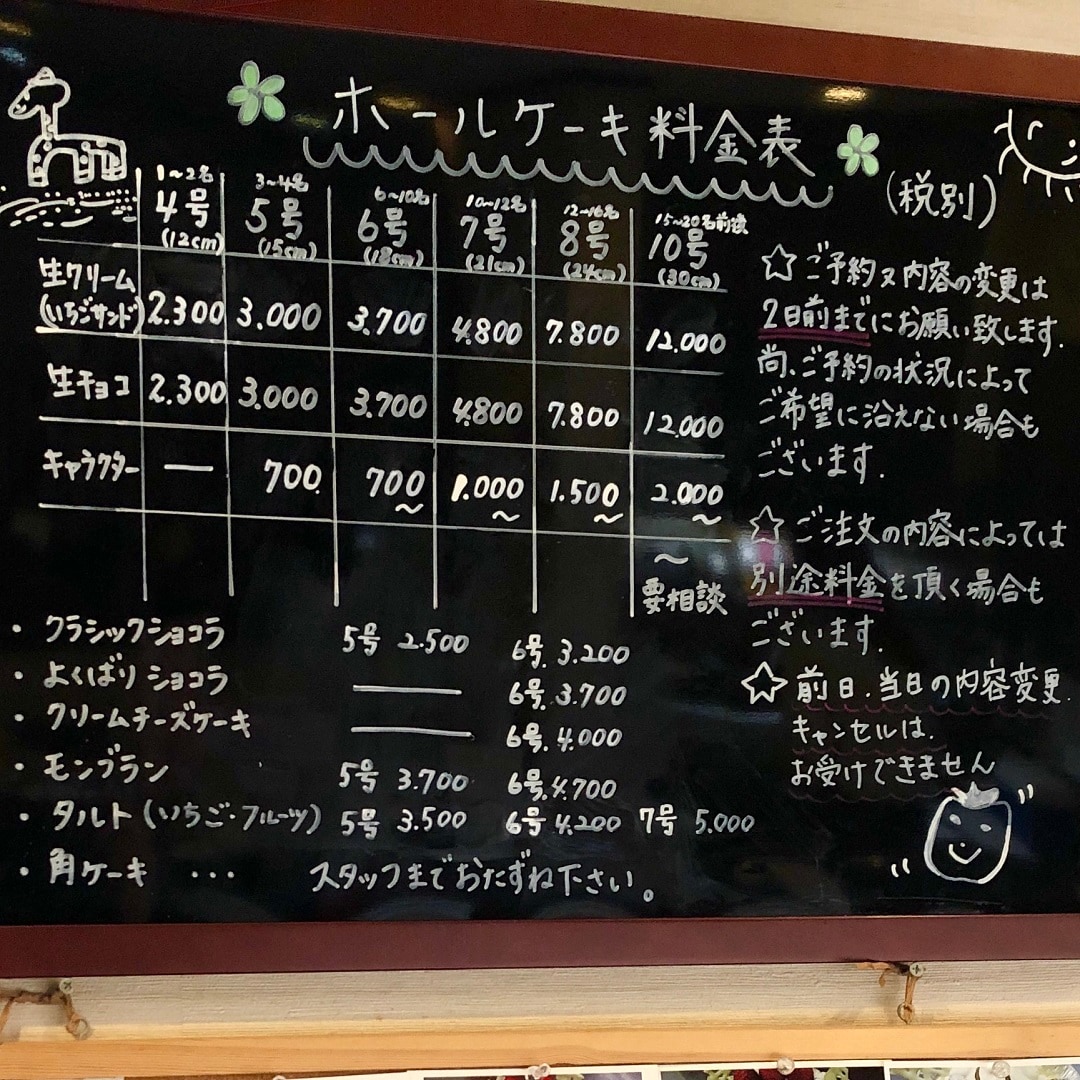 ホールケーキ料金表
(税別)
1~2名 3~4名 6~10名 10~12名 12~16名 15~20名前後
4号 5号 6号 7号 8号 10号
(12cm) (15cm) (18cm) (21cm) (24cm) (30cm)
生クリーム
(いちごサンド) 2.300 3.000 3.700 4.800 7.800 12.000
生チョコ 2.300 3.000 3.700 4.800 7.800 12.000
キャラクター — 700. 700~ 1.000~ 1.500~ 2.000~
~
要相談
・クラシックショコラ 5号 2.500 6号. 3.200
・よくばりショコラ — 6号. 3.700
・クリームチーズケーキ — 6号. 4.000
・モンブラン 5号 3.700 6号. 4.700
・タルト(いちご・フルーツ) 5号 3.500 6号 4.200 7号 5.000
・角ケーキ ・・・ スタッフまでおたずね下さい。
☆ご予約又内容の変更は
2日前までにお願い致します.
尚、ご予約の状況によって
ご希望に沿えない場合も
ございます.
☆ご注文の内容によっては
別途料金を頂く場合も
ございます.
☆前日.当日の内容変更.
キャンセルは.
お受けできません